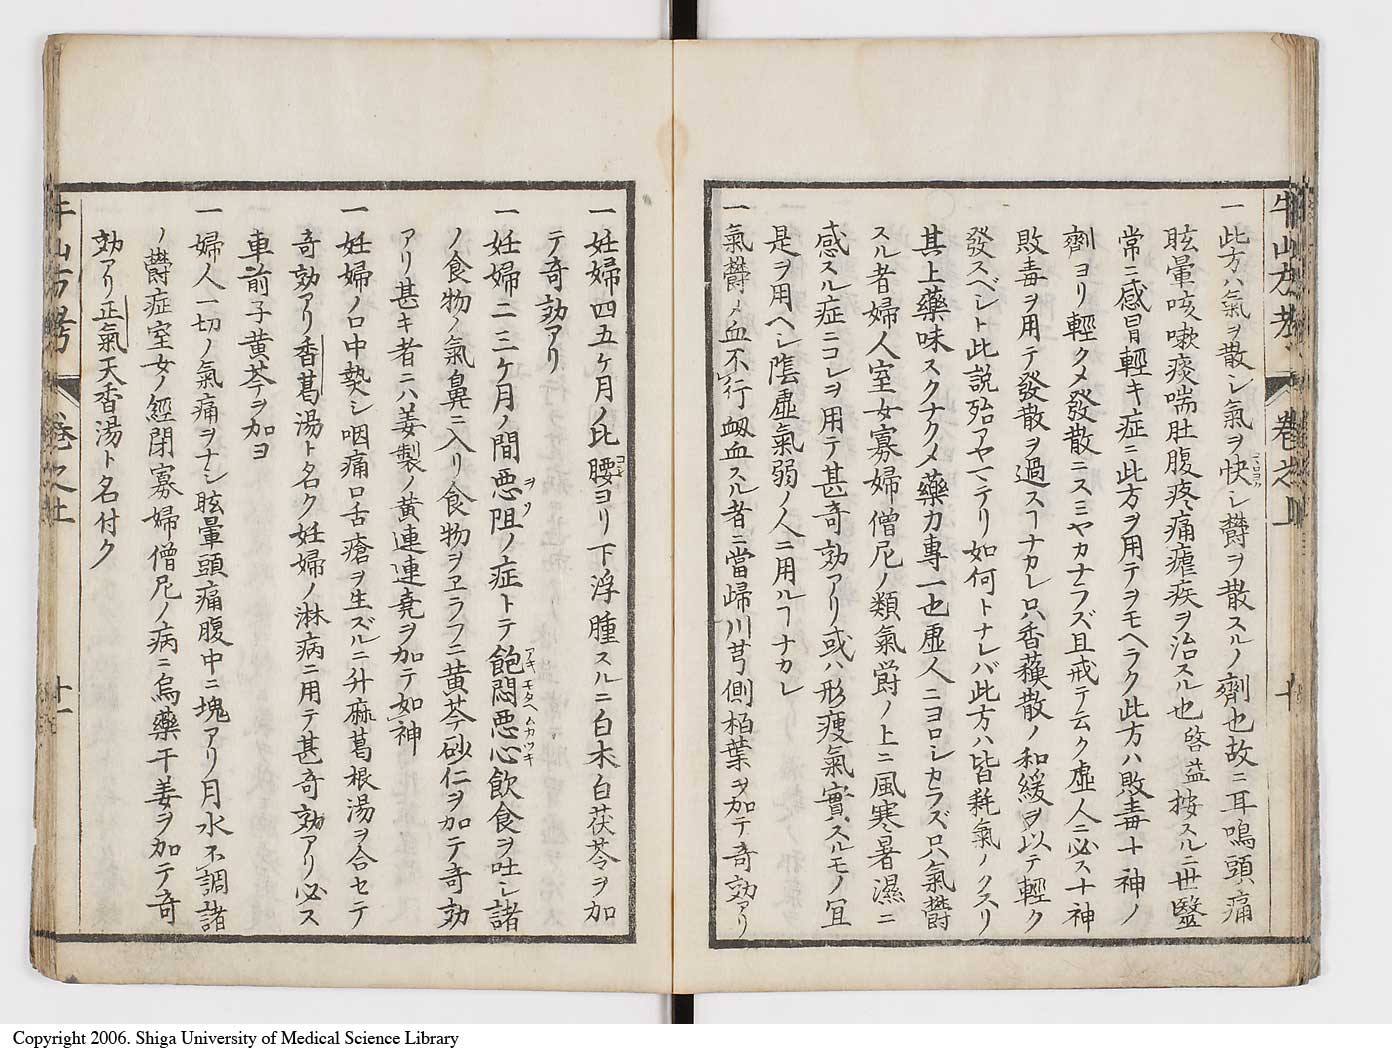 牛山方考 卷之上 十
一此方ハ氣ヲ散シ氣ヲ快シ欝ヲ散スルノ劑也故ニ耳鳴頭痛
眩暈咳嗽痰喘肚腹疼痛瘧疾ヲ治スル也啓益按スルニ世醫
常ニ感冒輕キ症ニ此方ヲ用テヲモヘラク此方ハ敗毒十神ノ
劑ヨリ輕クメ發散ニスミヤカナラズ且戒テ云ク虚人ニ必ス十神
敗毒ヲ用テ發散ヲ過スヿナカレ只香蘓散ノ和緩ヲ以テ輕ク
發スベシト此説殆アヤマテリ如何トナレバ此方ハ皆耗氣ノクスリ
其上藥味スクナクメ藥力專一也虚人ニヨロシカラズ只氣欝
スル者婦人室女寡婦僧尼ノ類氣欝ノ上ニ風寒暑濕ニ
感スル症ニコレヲ用テ甚奇効アリ或ハ形瘦氣實スルモノ宜
是ヲ用ヘシ陰虚氣弱ノ人ニ用ルヿナカレ
一氣欝メ血不行衂血スル者ニ當歸川芎側栢葉ヲ加テ奇効アリ
一妊婦四五ケ月ノ比腰ヨリ下浮腫スルニ白朮白茯苓ヲ加
テ奇効アリ
一妊婦二三ケ月ノ間悪阻ノ症トテ飽悶悪心飲食ヲ吐シ諸
ノ食物ノ氣鼻ニ入リ食物ヲヱラフニ黄芩砂仁ヲ加テ奇効
アリ甚キ者ニハ姜製ノ黄連連堯ヲ加テ如神
一妊婦ノ口中熱シ咽痛口舌瘡ヲ生ズルニ升麻葛根湯ヲ合セテ
奇効アリ香葛湯ト名ク妊婦ノ淋病ニ用テ甚奇効アリ必ス
車前子黄芩ヲ加ヨ
一婦人一切ノ氣痛ヲナシ眩暈頭痛腹中ニ塊アリ月水不調諸
ノ欝症室女ノ經閉寡婦僧尼ノ病ニ烏藥干姜ヲ加テ奇
効アリ正氣天香湯ト名付ク
牛山方考 卷之上 十一
Copyright 2006. Shiga University of Medical Science Library